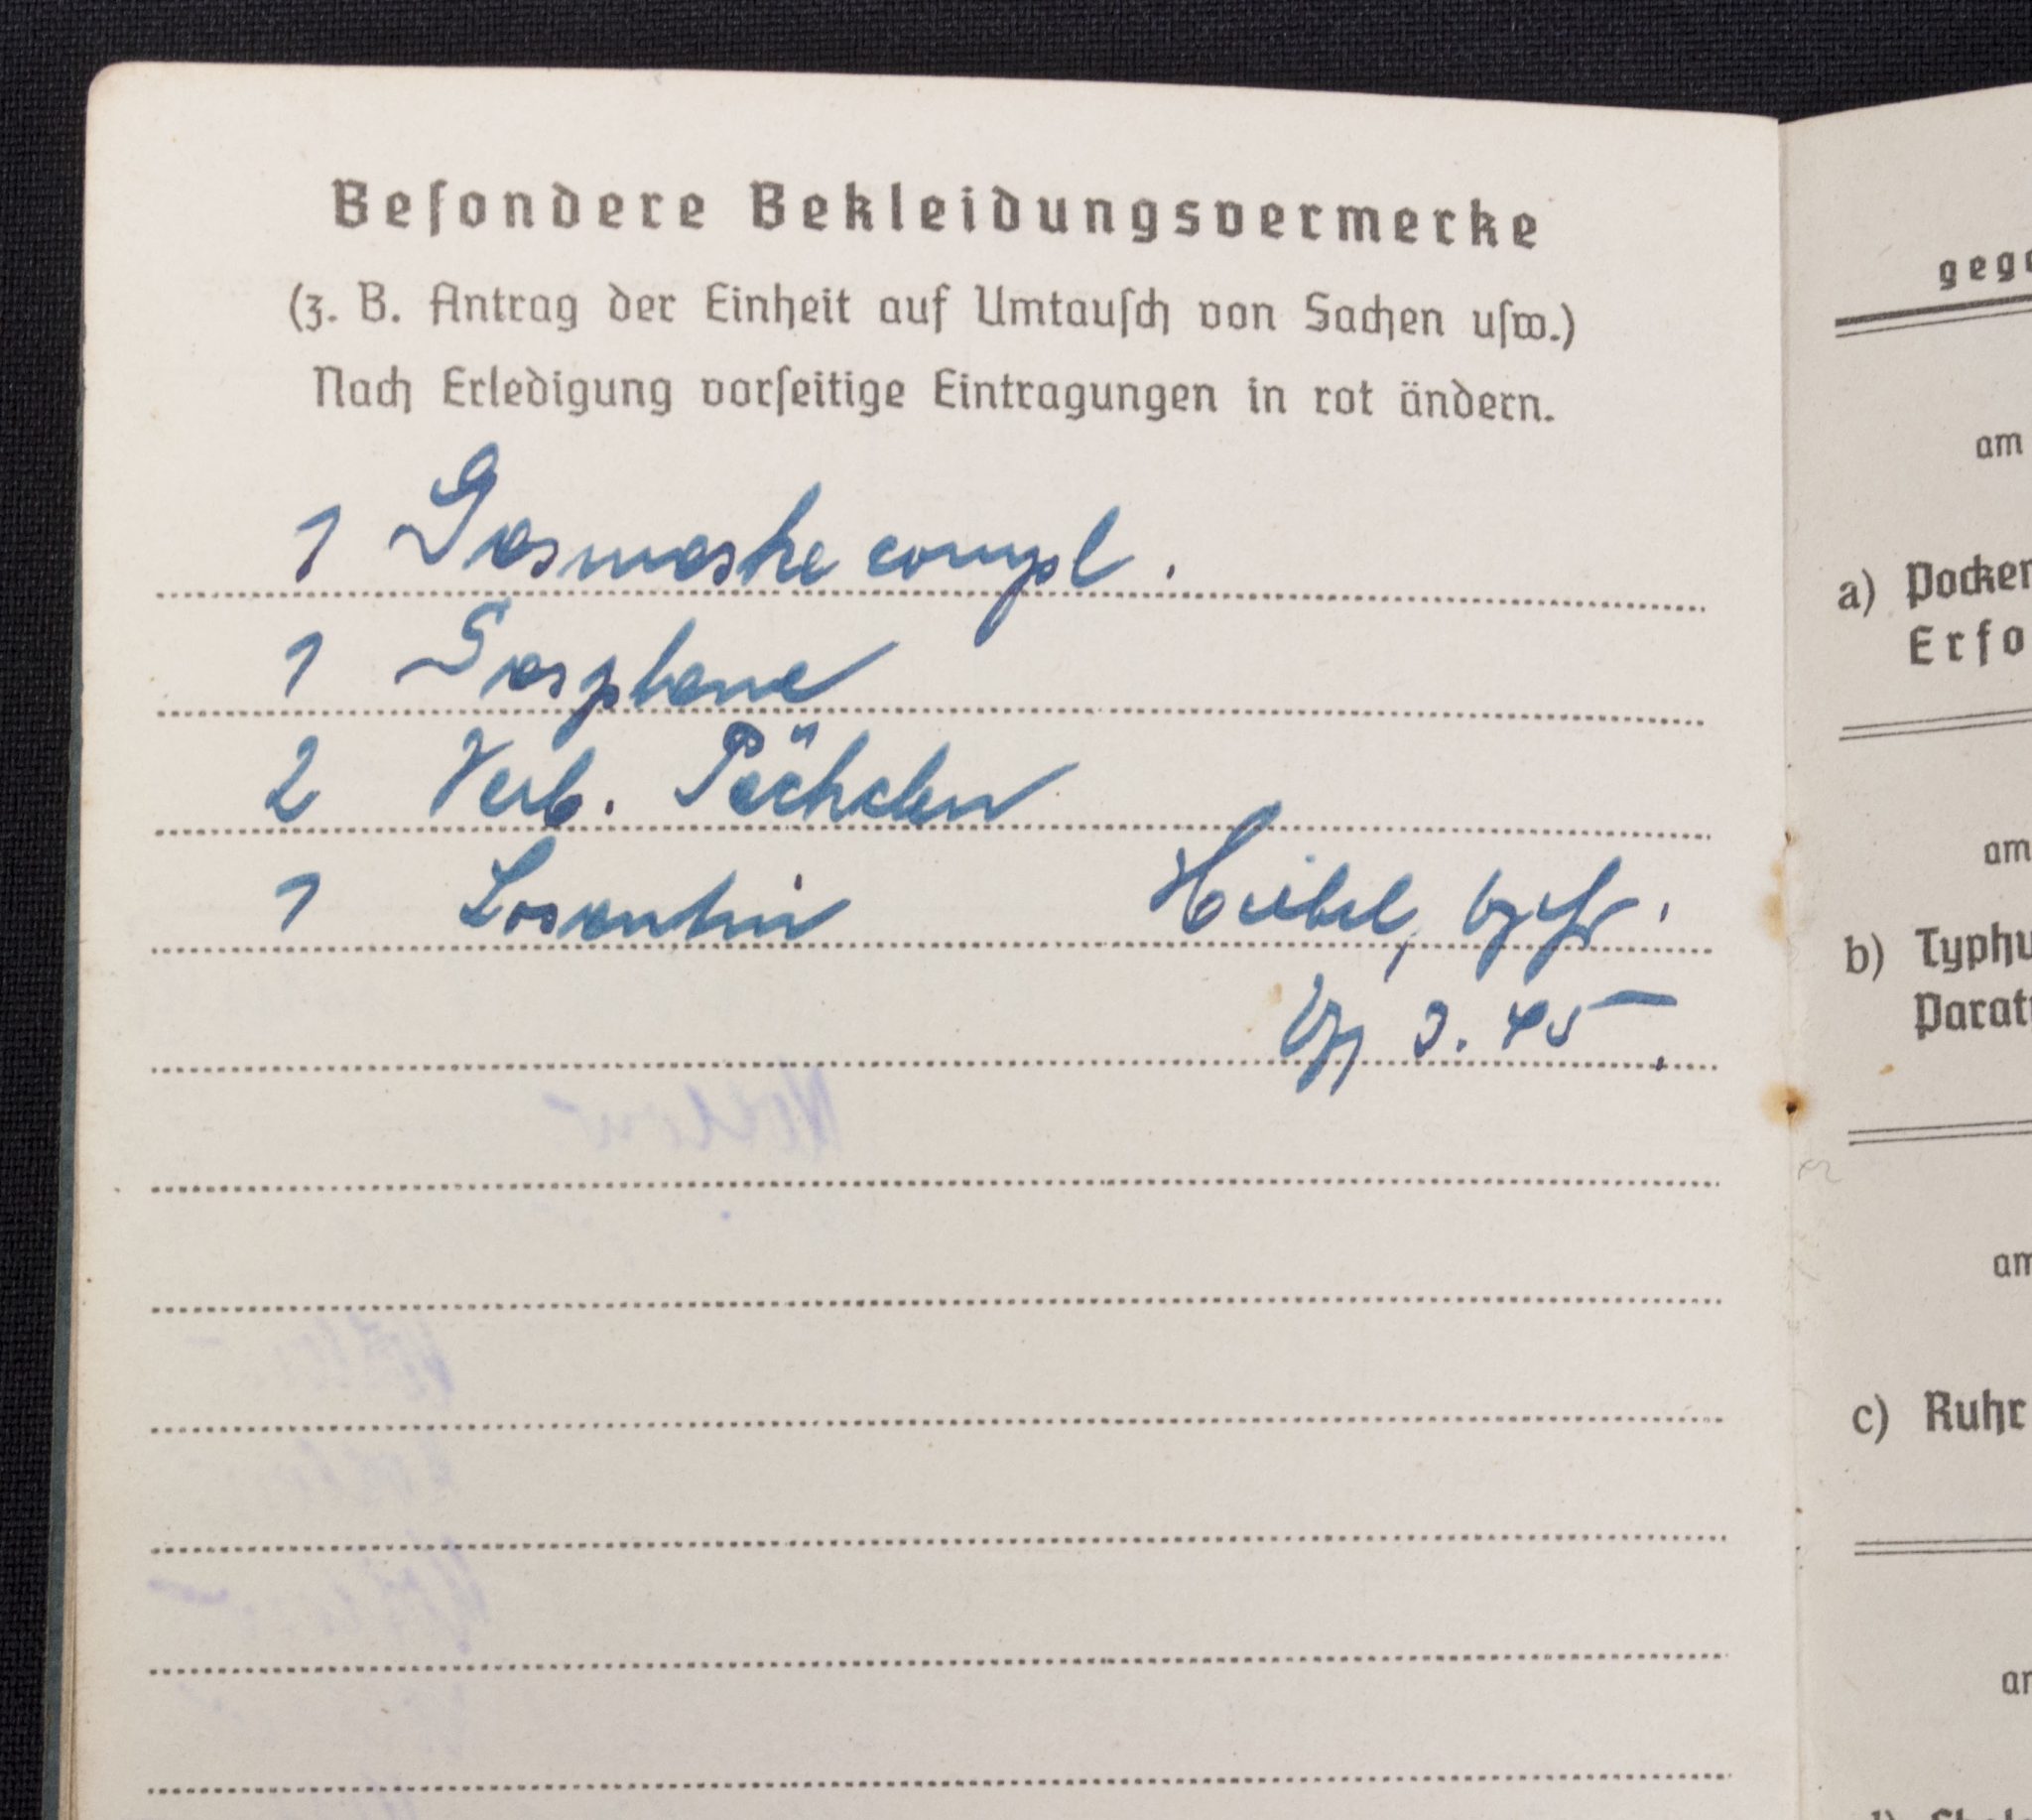 Beſondere Bekleidungsvermerke
(z. B. Antrag der Einheit auf Umtauſch von Sachen uſw.)
Nach Erledigung vorſeitige Eintragungen in rot ändern.
1 Gasmaske compl.
1 Gasplane
2 Verb. Päckchen
1 Losantin
3. 45.
gege
am
a) Pocken
Erfo
am
b) Typhu
Parat
am
c) Ruhr